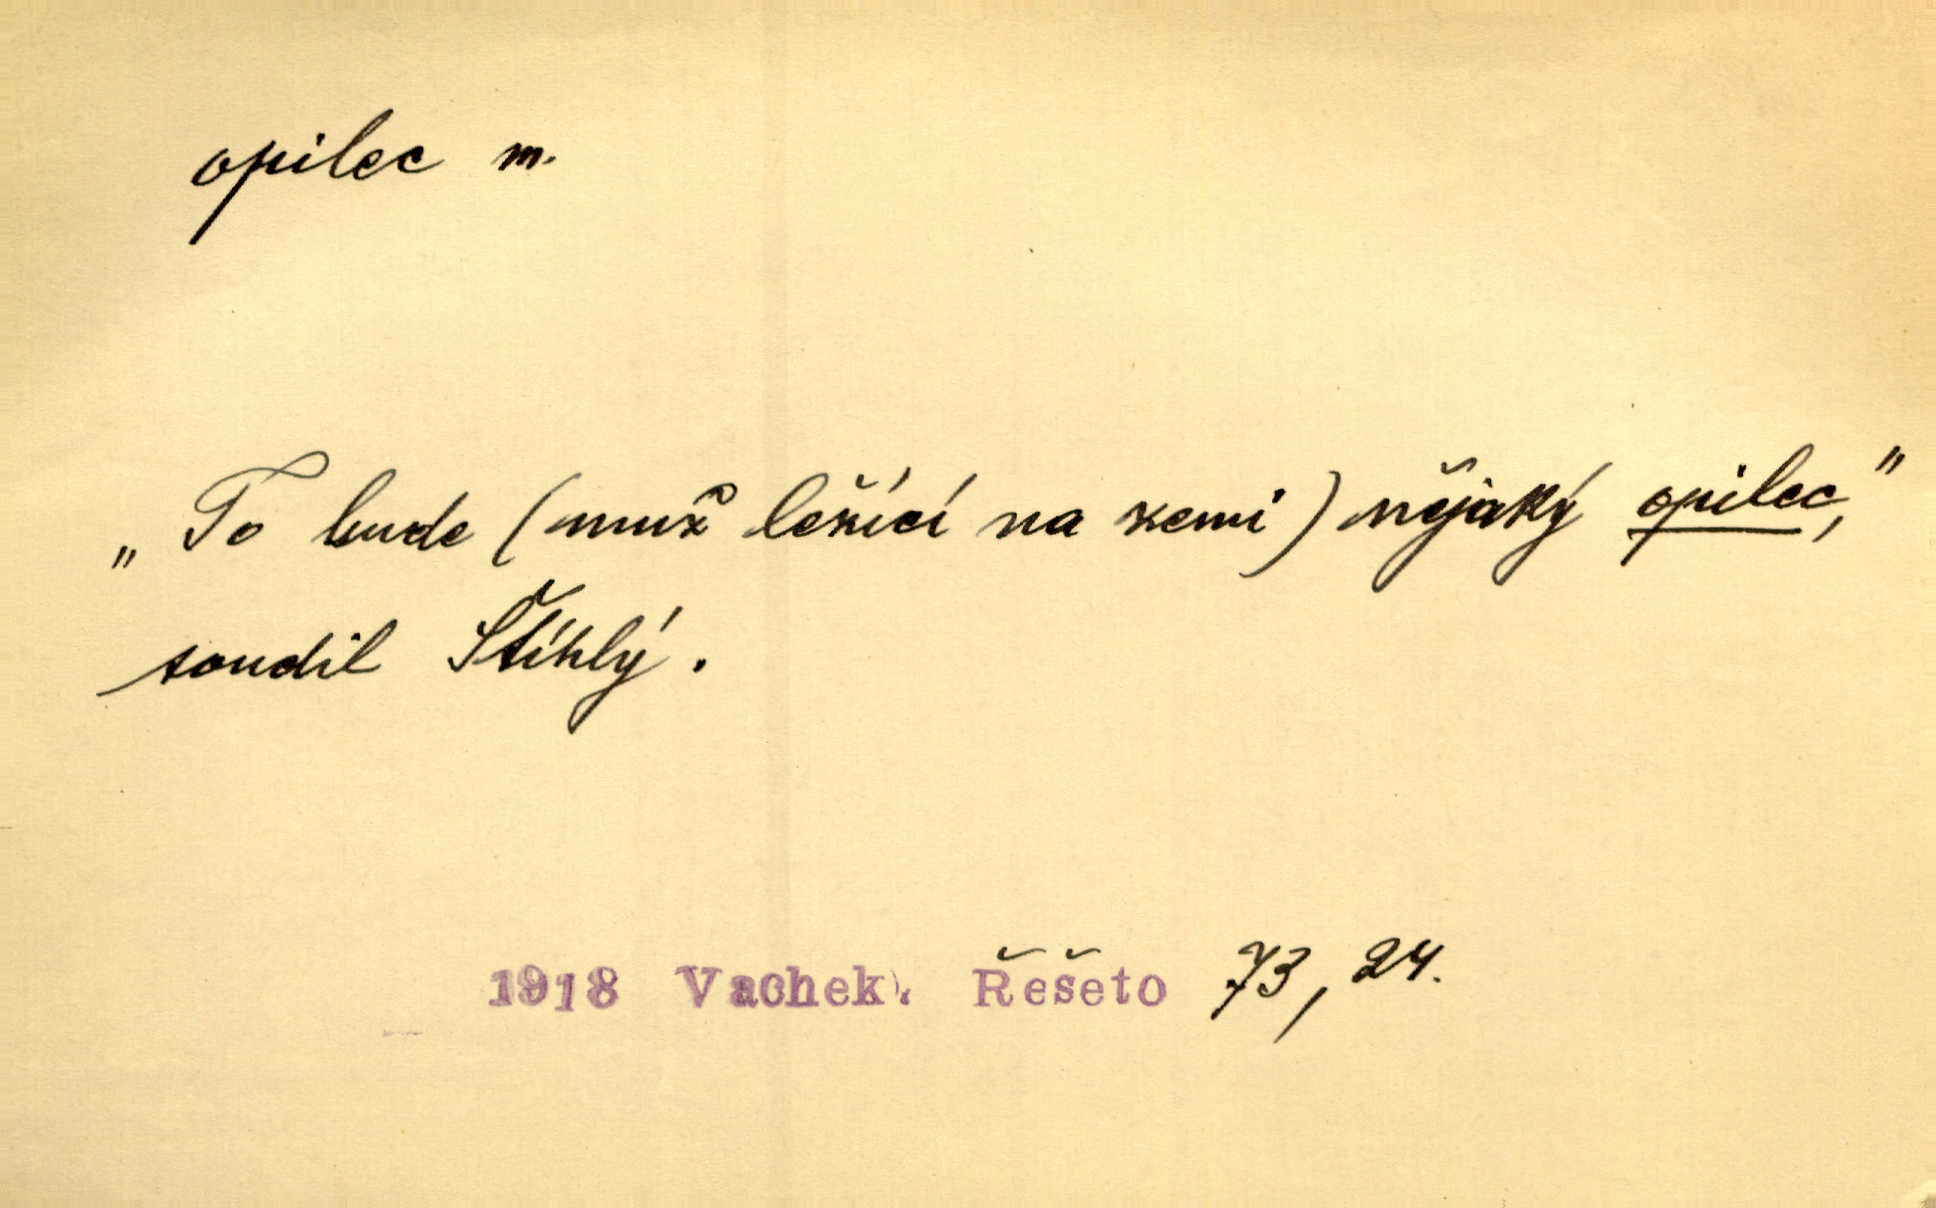 opilec m.
„To bude (muž ležící na zemi) nějaký opilec,"
soudil Štíhlý.
1918 Vachek. Řešeto 73, 24.